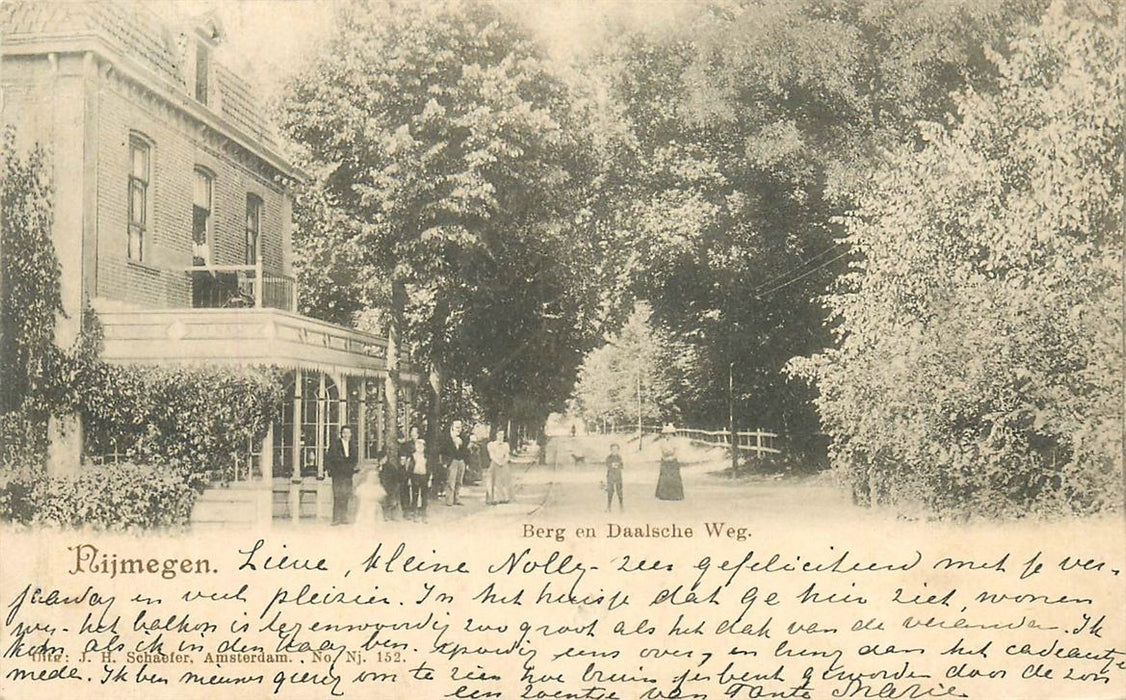 Berg en Daalsche Weg.
Nijmegen. Lieve, kleine Nolly - zeer gefeliciteerd met je ver-
jaardag en veel pleizier. In het huisje dat ge hier ziet, wonen
wy - het balkon is tegenwoordig zoo groot als het dak van de veranda. Ik
kom als ik in den Haag ben spoedig eens over, en breng dan het cadeautje
Uitg: J. H. Schaefer, Amsterdam. No. Nj. 152.
mede. Ik ben nieuwsgierig om te zien hoe bruin je bent geworden door de zon
een zoentje van Tante Marie